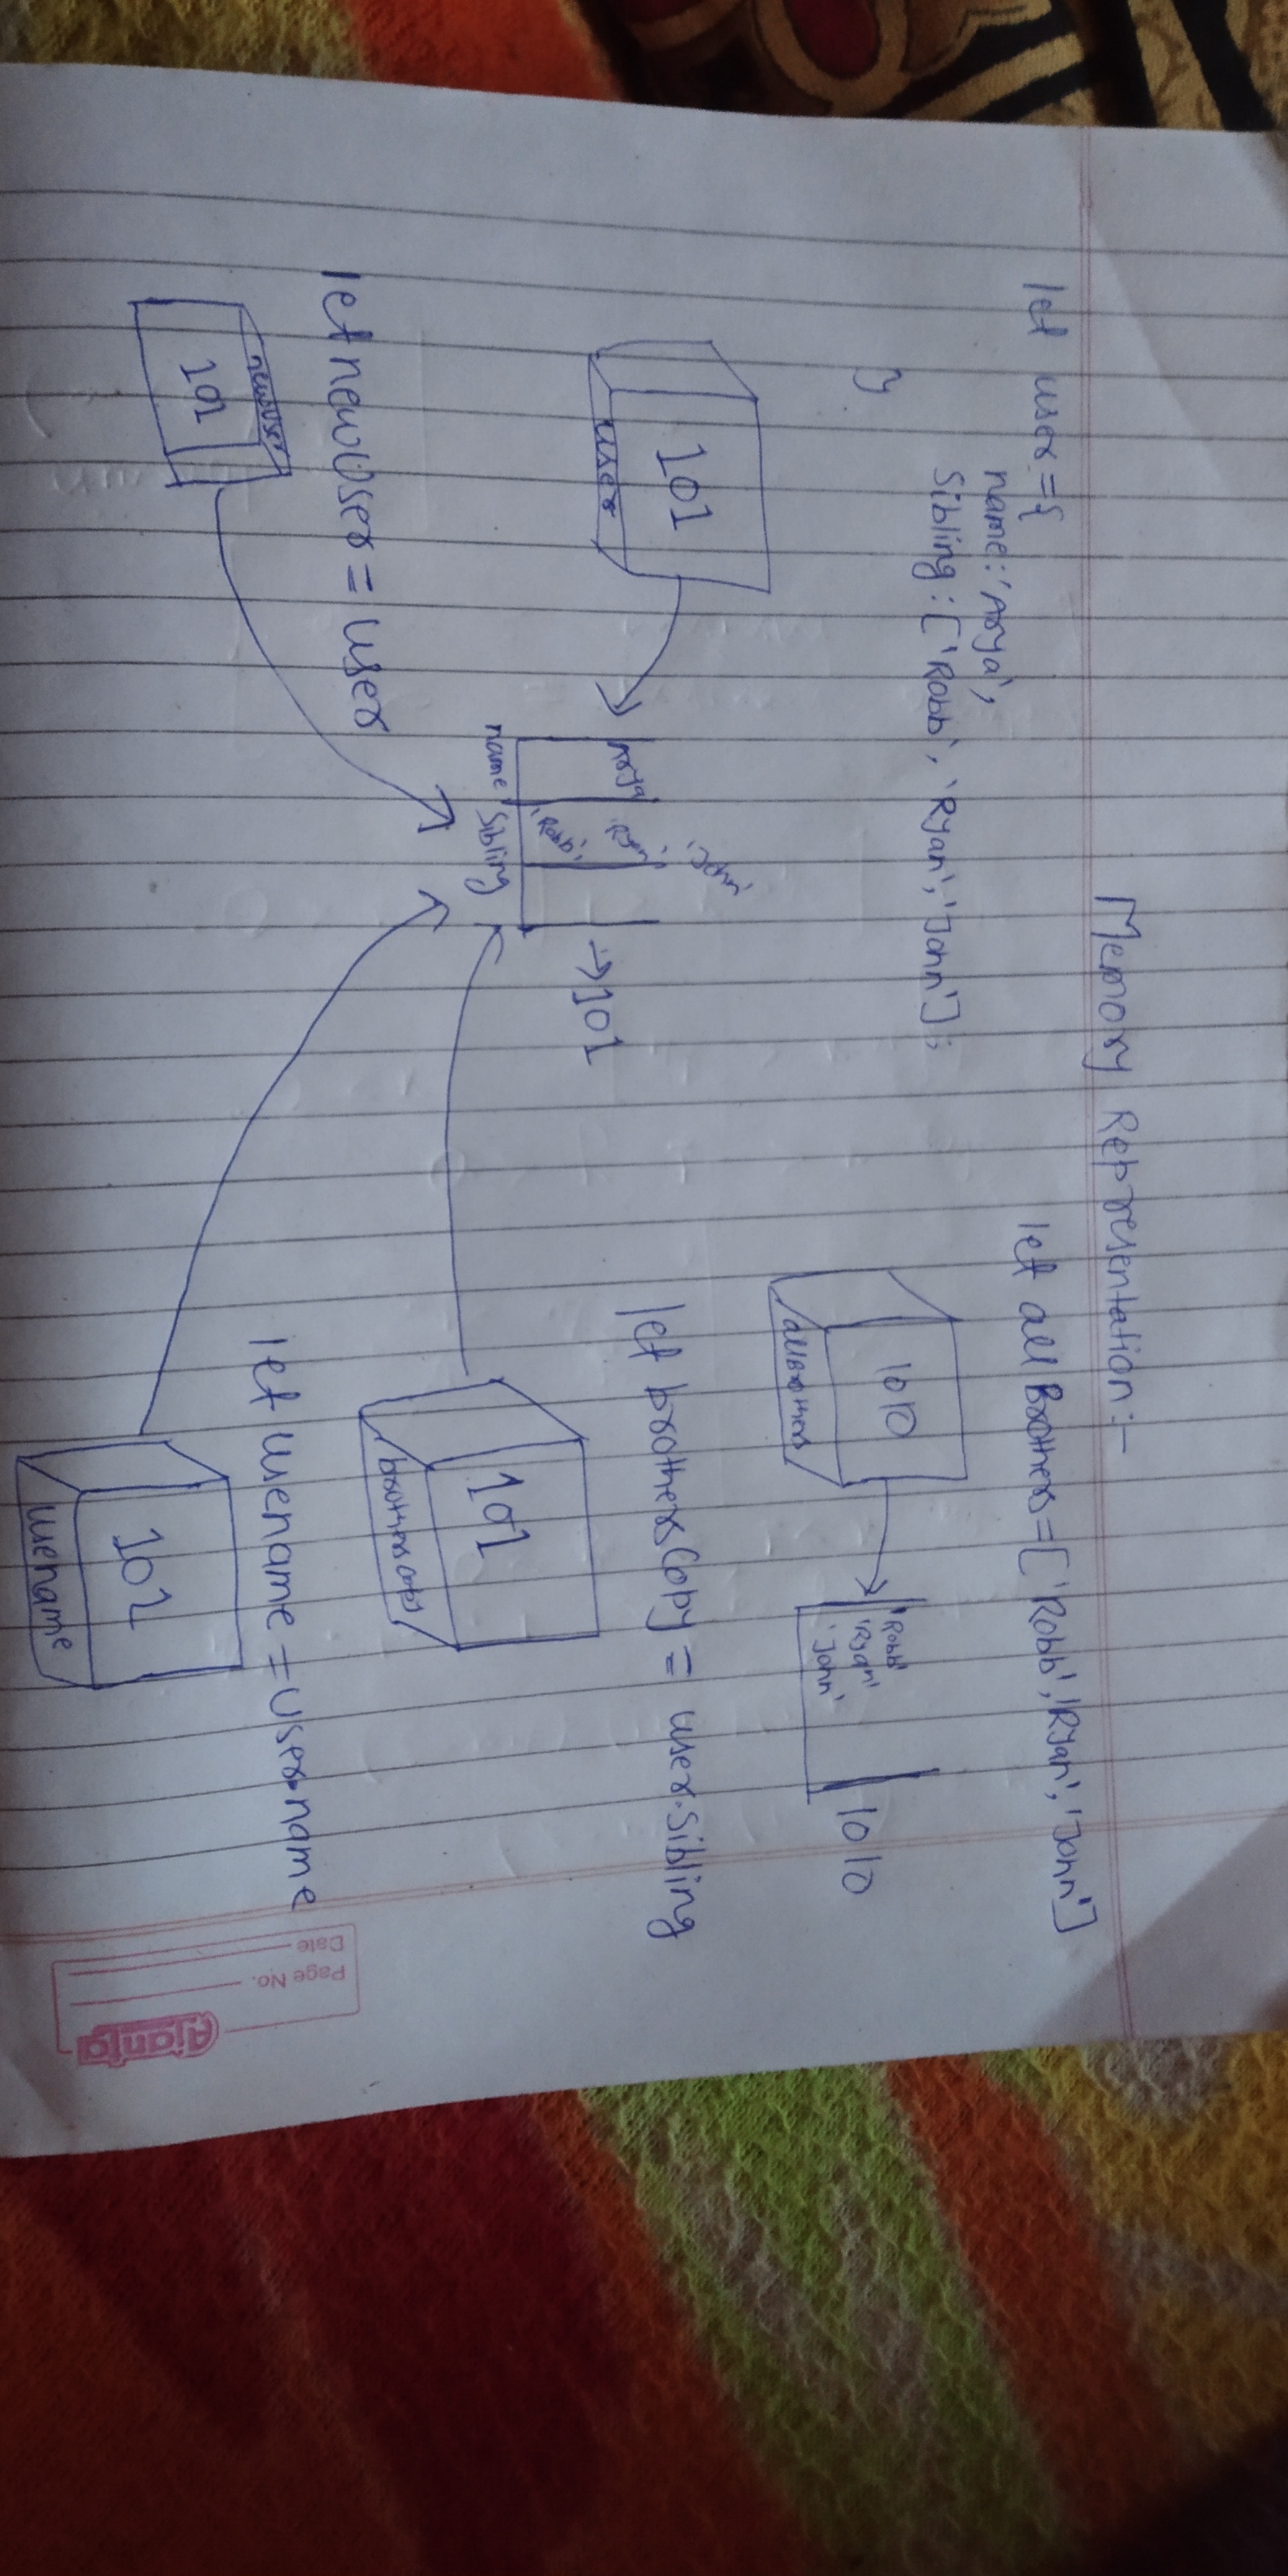 Memory Representation:-
let user = {
name: 'Arya',
Sibling: ['Robb', 'Ryan', 'John'];
}
101
user
Arya
'Robb'
'Ryan'
'John'
name
Sibling
→101
let newUser = user
newUser
101
let allBrothers = ['Robb', 'Ryan', 'John']
1010
allBrothers
'Robb'
'Ryan'
'John'
1010
let brothersCopy = user.sibling
101
brothersCopy
let usename = user.name
101
usename
Ajanta
Page No.
Date